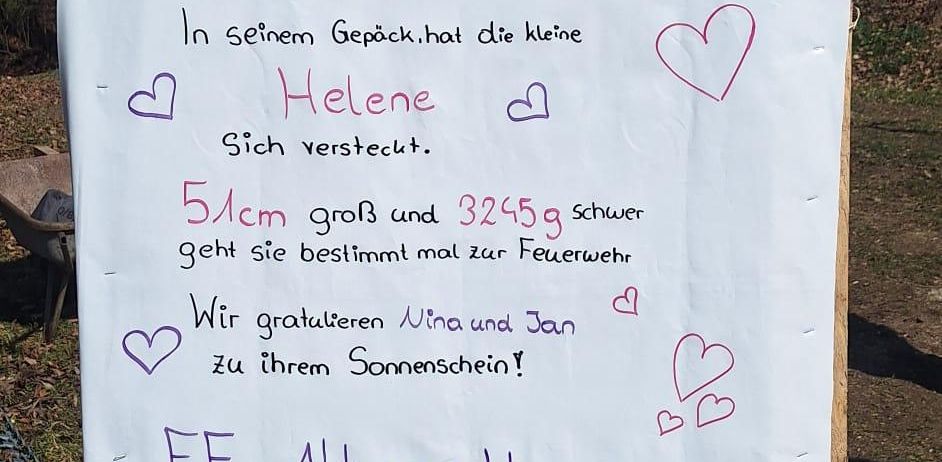 In seinem Gepäck, hat die kleine
Helene
Sich versteckt.
51cm groß und 3245g schwer
geht sie bestimmt mal zur Feuerwehr
Wir gratulieren Nina und Jan
zu ihrem Sonnenschein!
FF